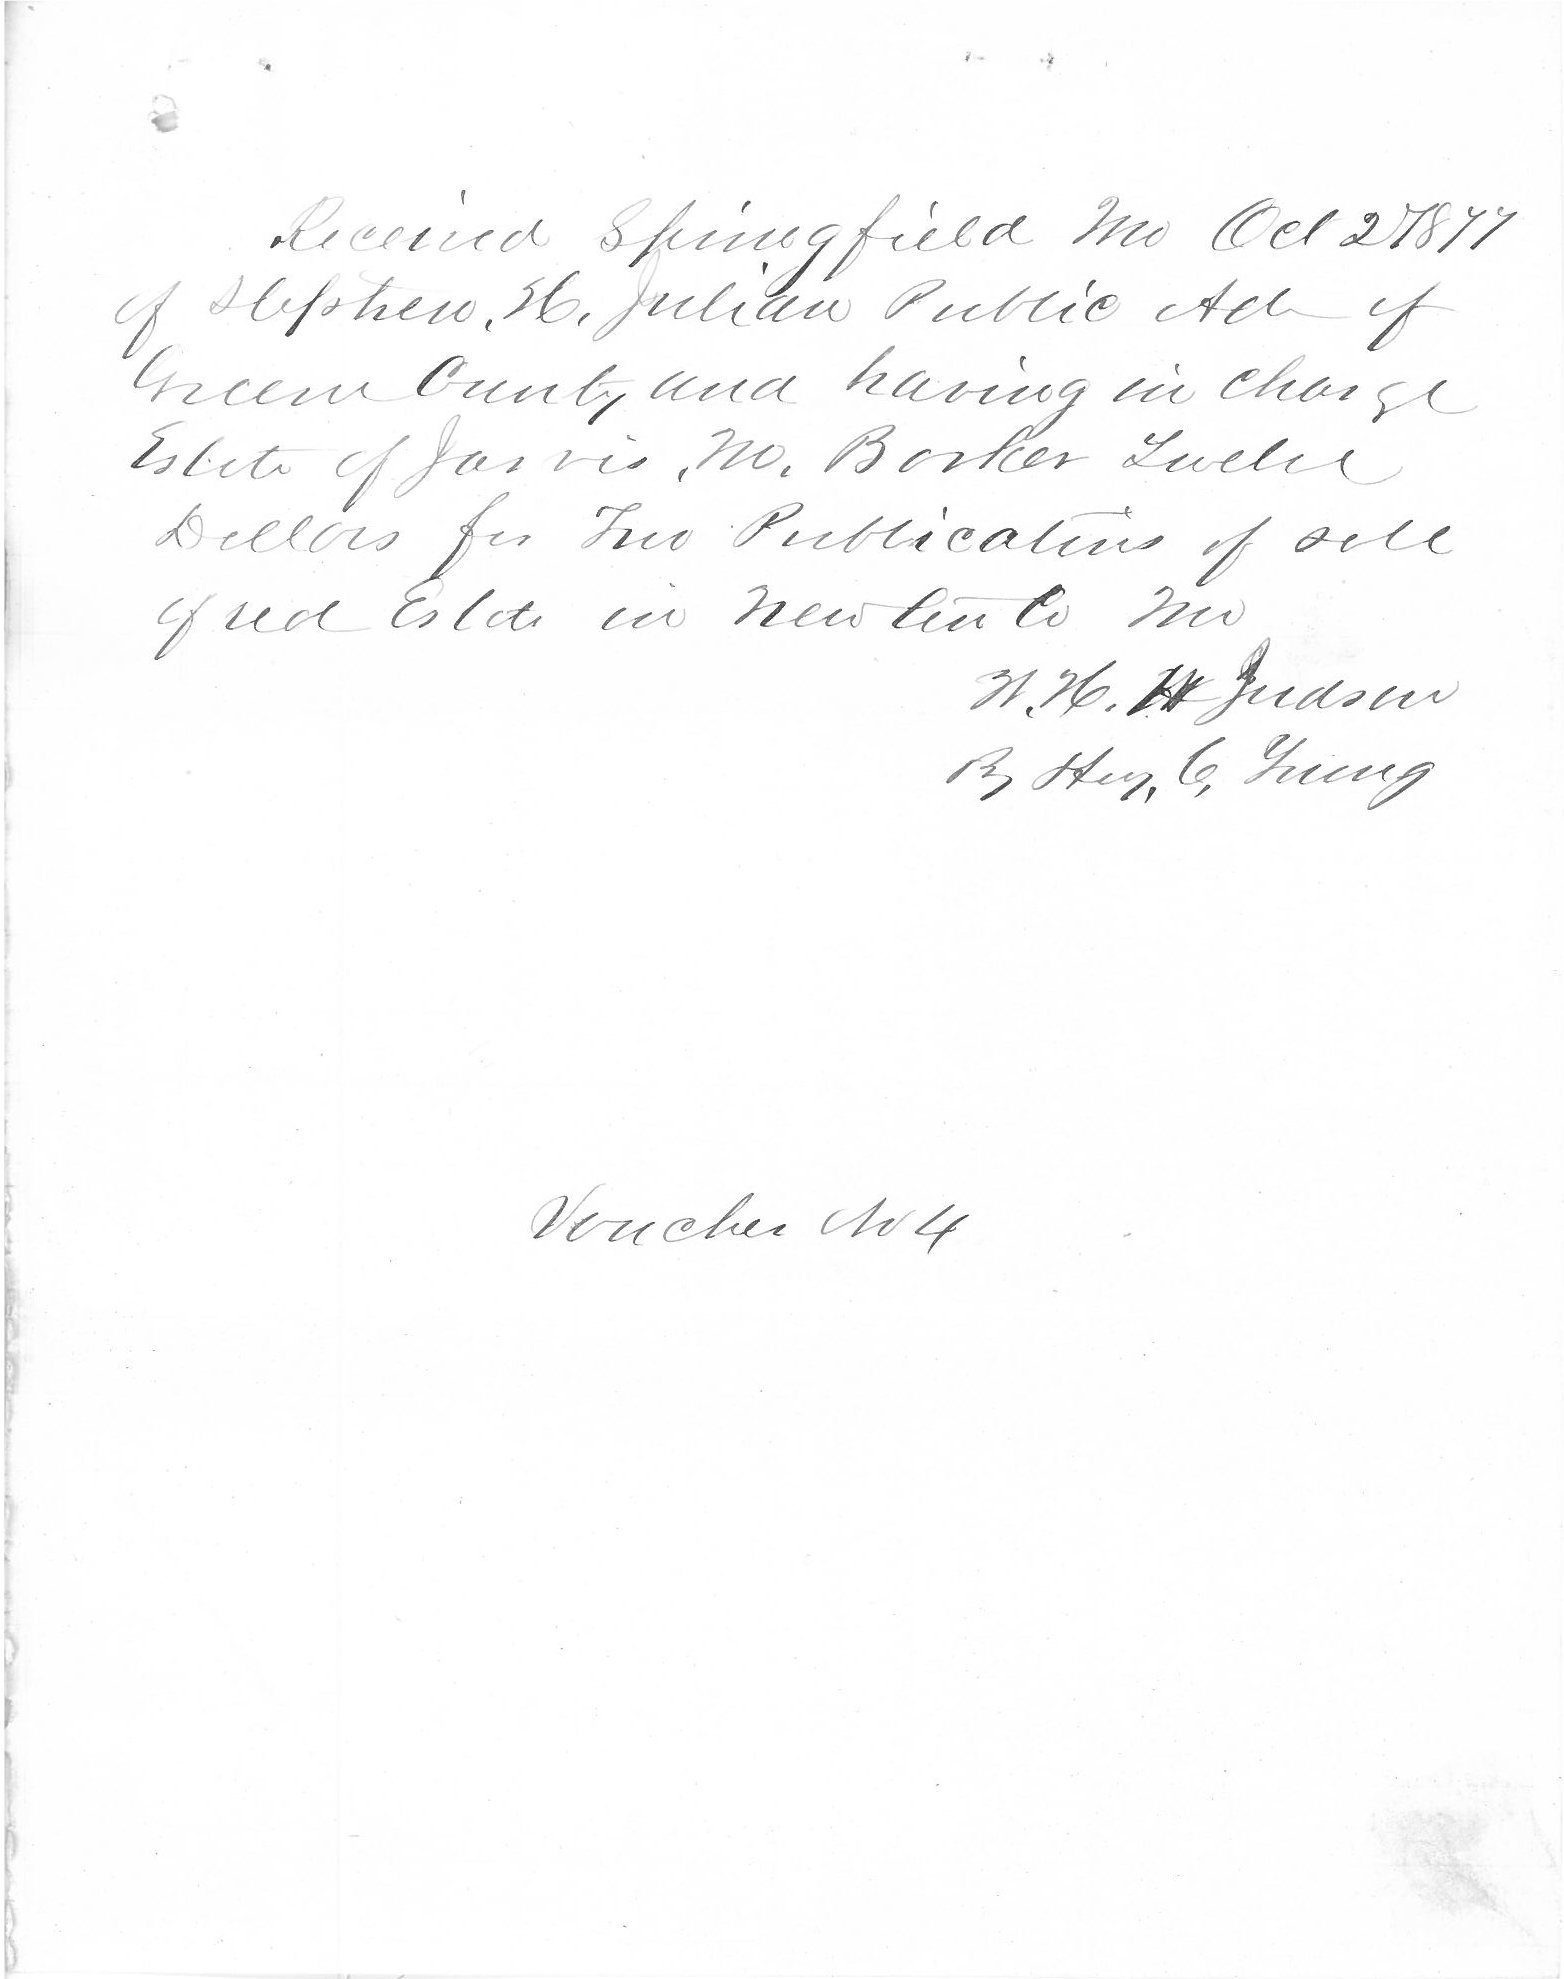 Received Springfield Mo Oct 2 1877
of Stephen, H, Julian Public Adm of
Greene County and having in charge
Estate of Jarvis, M, Barker Twelve
Dollars for Two Publications of sale
of real Estate in Newton Co Mo
W. H. H Judson
By Hey, C, Young
Voucher No 4